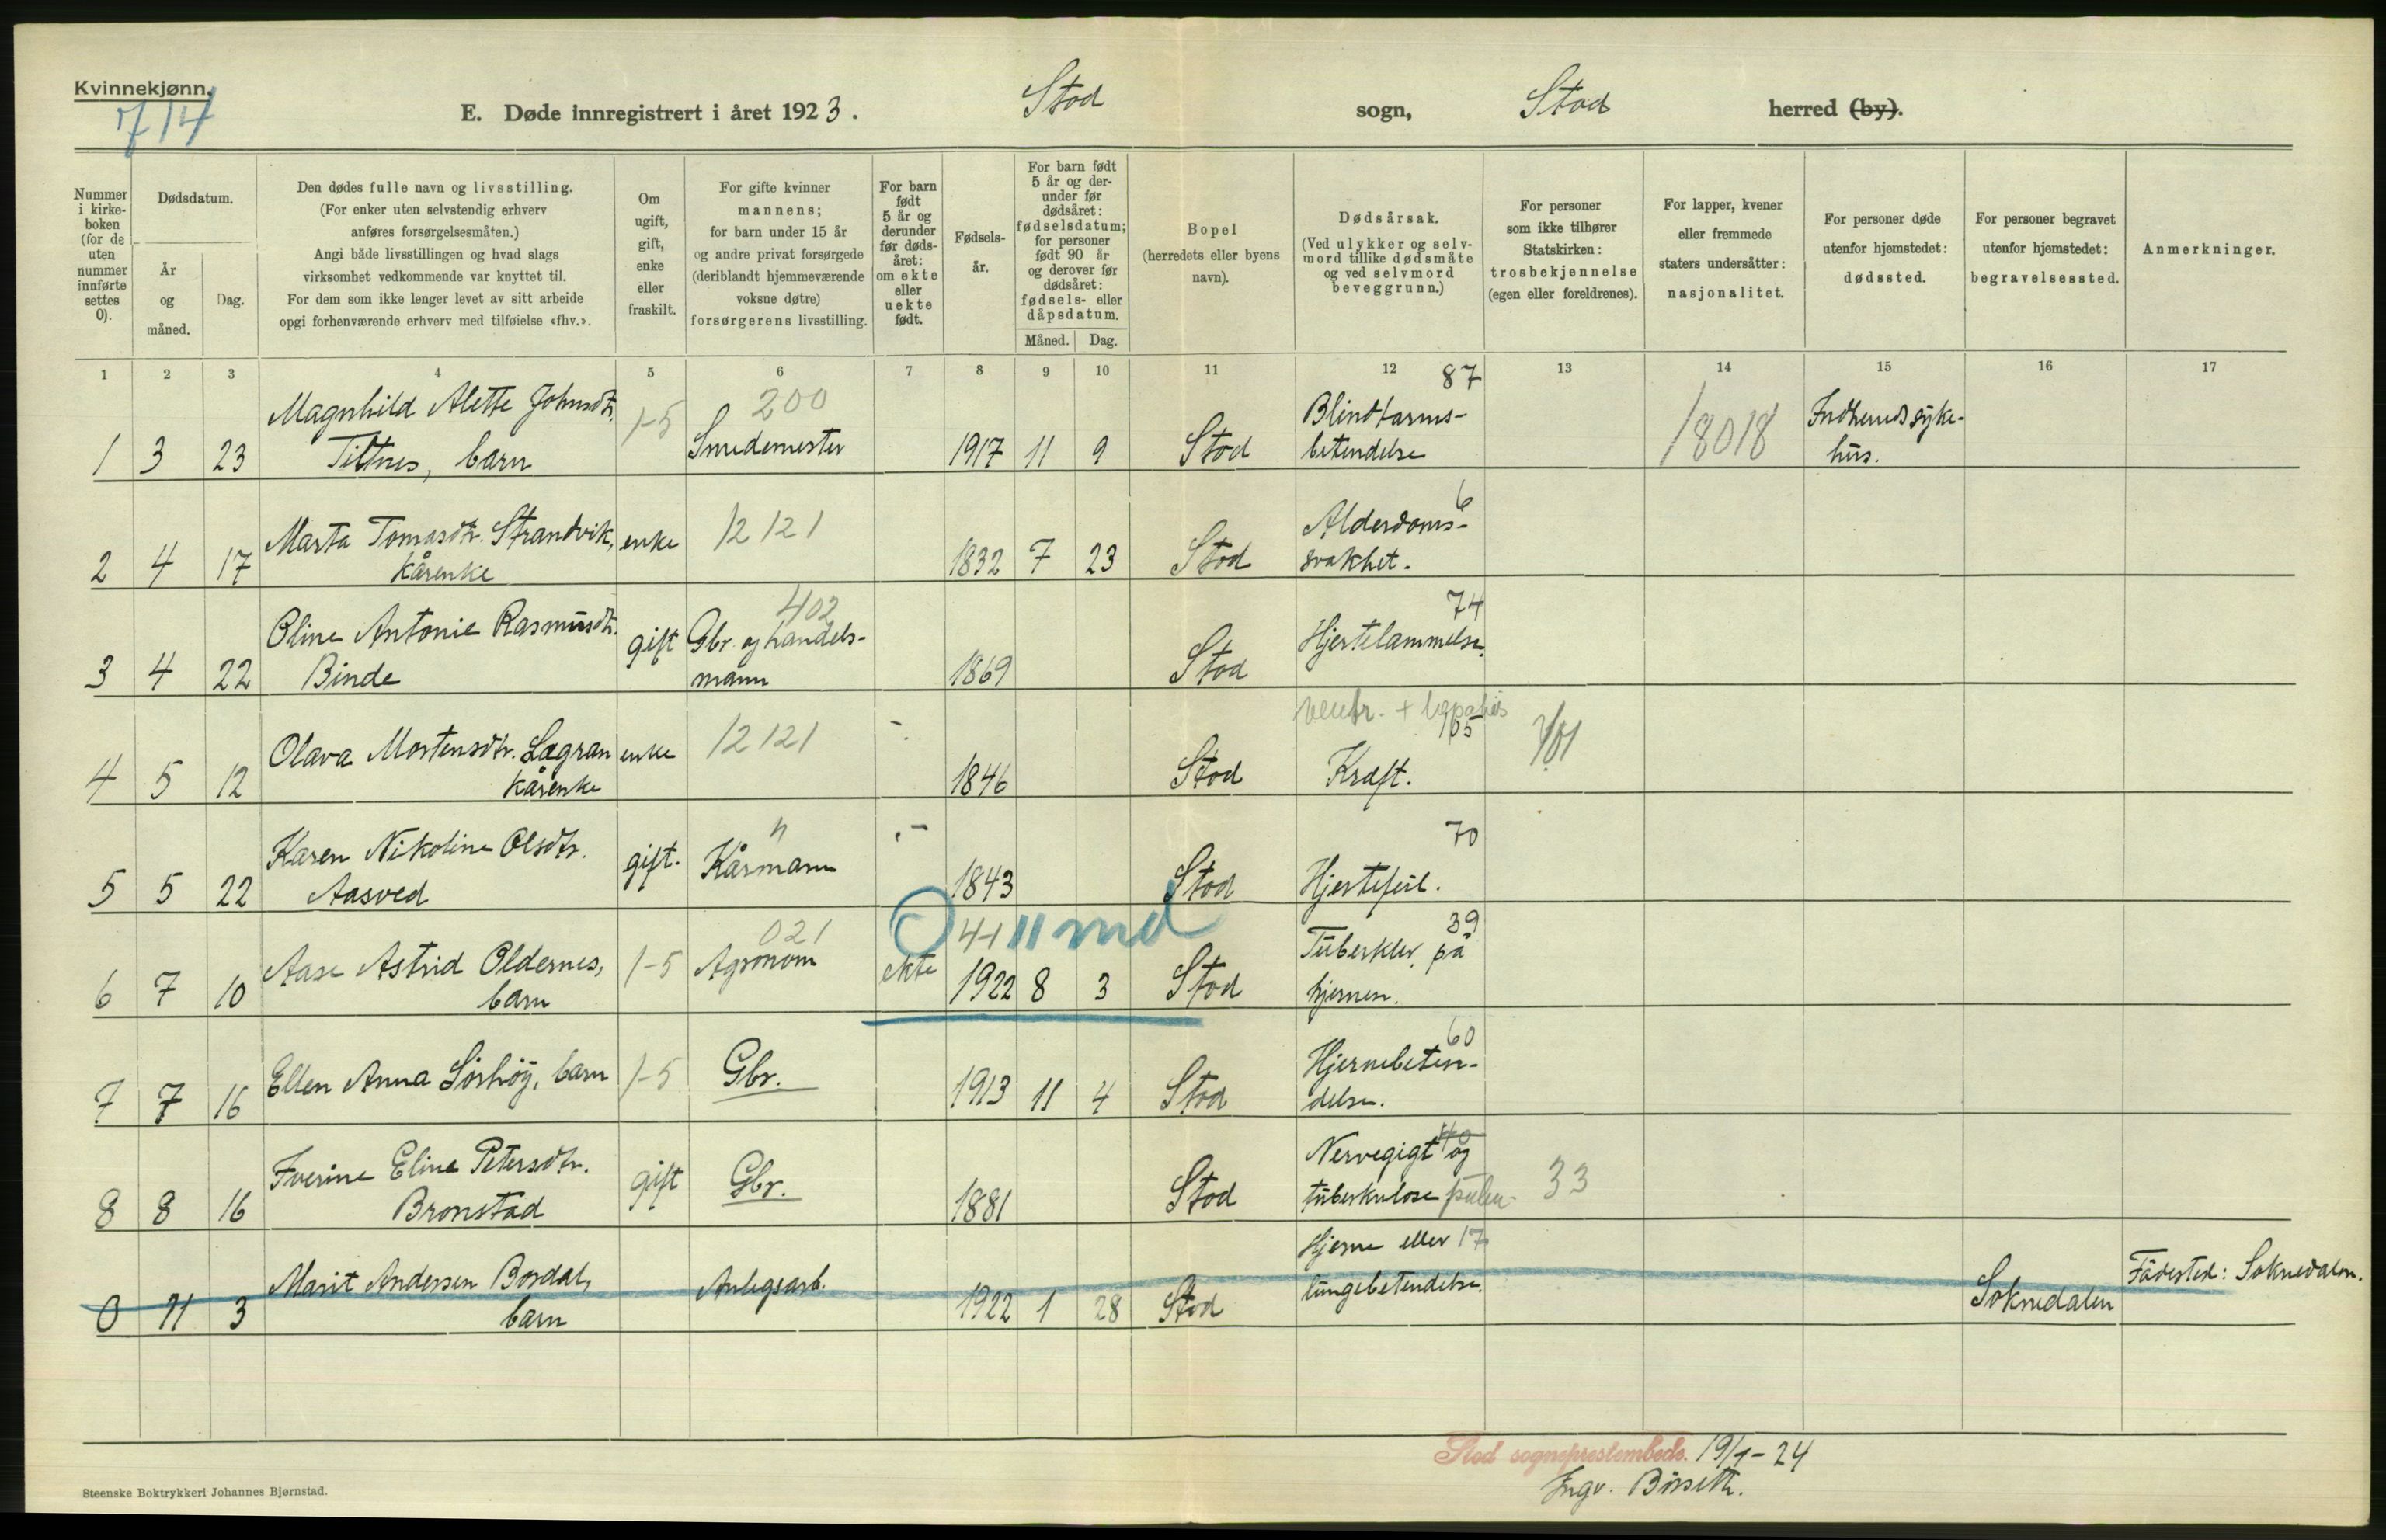 Kvinnekjønn.
714
E. Døde innregistrert i året 1923. Stod sogn, Stod herred (by).
Nummer i kirke-boken (for de uten nummer innførte settes 0).
Dødsdatum.
År og måned.
Dag.
Den dødes fulle navn og livsstilling.
(For enker uten selvstendig erhverv
anføres forsørgelsesmåten.)
Angi både livsstillingen og hvad slags
virksomhet vedkommende var knyttet til.
For dem som ikke lenger levet av sitt arbeide
opgi forhenværende erhverv med tilføielse «fhv.».
Om ugift, gift, enke eller fraskilt.
For gifte kvinner
mannens;
for barn under 15 år
og andre privat forsørgede
(deriblandt hjemmeværende
voksne døtre)
forsørgerens livsstilling.
For barn født 5 år og derunder før døds-året: om ekte eller uekte født.
Fødsels-år.
For barn født 5 år og der-under før dødsåret: fødselsdatum; for personer født 90 år og derover før dødsåret: fødsels- eller dåpsdatum.
Måned. Dag.
Bopel
(herredets eller byens
navn).
Dødsårsak.
(Ved ulykker og selv-
mord tillike dødsmåte
og ved selvmord
beveggrunn.)
For personer
som ikke tilhører
Statskirken:
trosbekjennelse
(egen eller foreldrenes).
For lapper, kvener
eller fremmede
staters undersåtter:
nasjonalitet.
For personer døde
utenfor hjemstedet:
dødssted.
For personer begravet
utenfor hjemstedet:
begravelsessted.
Anmerkninger.
1 2 3 4 5 6 7 8 9 10 11 12 13 14 15 16 17
87
Magnhild Alette Johnsdtr. 1-5 200 Blindtarms- 18018 Indherreds syke-
1 3 23 Tiltnes, barn Smedemester 1917 11 9 Stod betendelse hus.
6
Marta Tomasdtr. Strandvik, enke 12121 Alderdoms-
2 4 17 kårenke 1832 7 23 Stod svakhet.
402 74
Oline Antonie Rasmusdtr. gift Gbr. og handels- Hjertelammelse.
3 4 22 Binde mann 1869 Stod
ventr. + hepatis
105
Olava Mortensdtr. Lægran enke 12121 -
4 5 12 kårenke 1846 Stod Kræft.
" - 70
Karen Nikoline Olsdtr. gift. Kårmann
5 5 22 Aasved 1843 Stod Hjertefeil.
021 4-1 11 md 39
Aase Astrid Oldernes, 1-5 Agronom ekte Tuberklev. på
6 7 10 barn 1922 8 3 Stod hjernen.
60
Ellen Anna Sørhøy, barn 1-5 Gbr. Hjernebeten-
7 7 16 1913 11 4 Stod delse.
Iverine Eline Petersdtr. gift Gbr. Nervegigt og 33
8 8 16 Bronstad 1881 Stod tuberkulose
Hjerne eller 17
Marit Andersen Bordal, Anlegsarb. lungebetendelse. Fødested: Soknedalen.
0 11 3 barn 1922 1 28 Stod Soknedalen
Stod sogneprestembede. 19/1-24
Ingv. Børseth.
Steenske Boktrykkeri Johannes Bjørnstad.